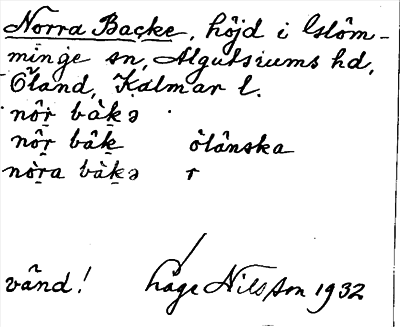 Norra Backe, höjd i Glöm-
minge sn, Algutsrums hd,
Öland, Kalmar l.
nôr bàkə
nôr bâk ölânska
nòra bàkə r
vänd! Åge Nilsson 1932